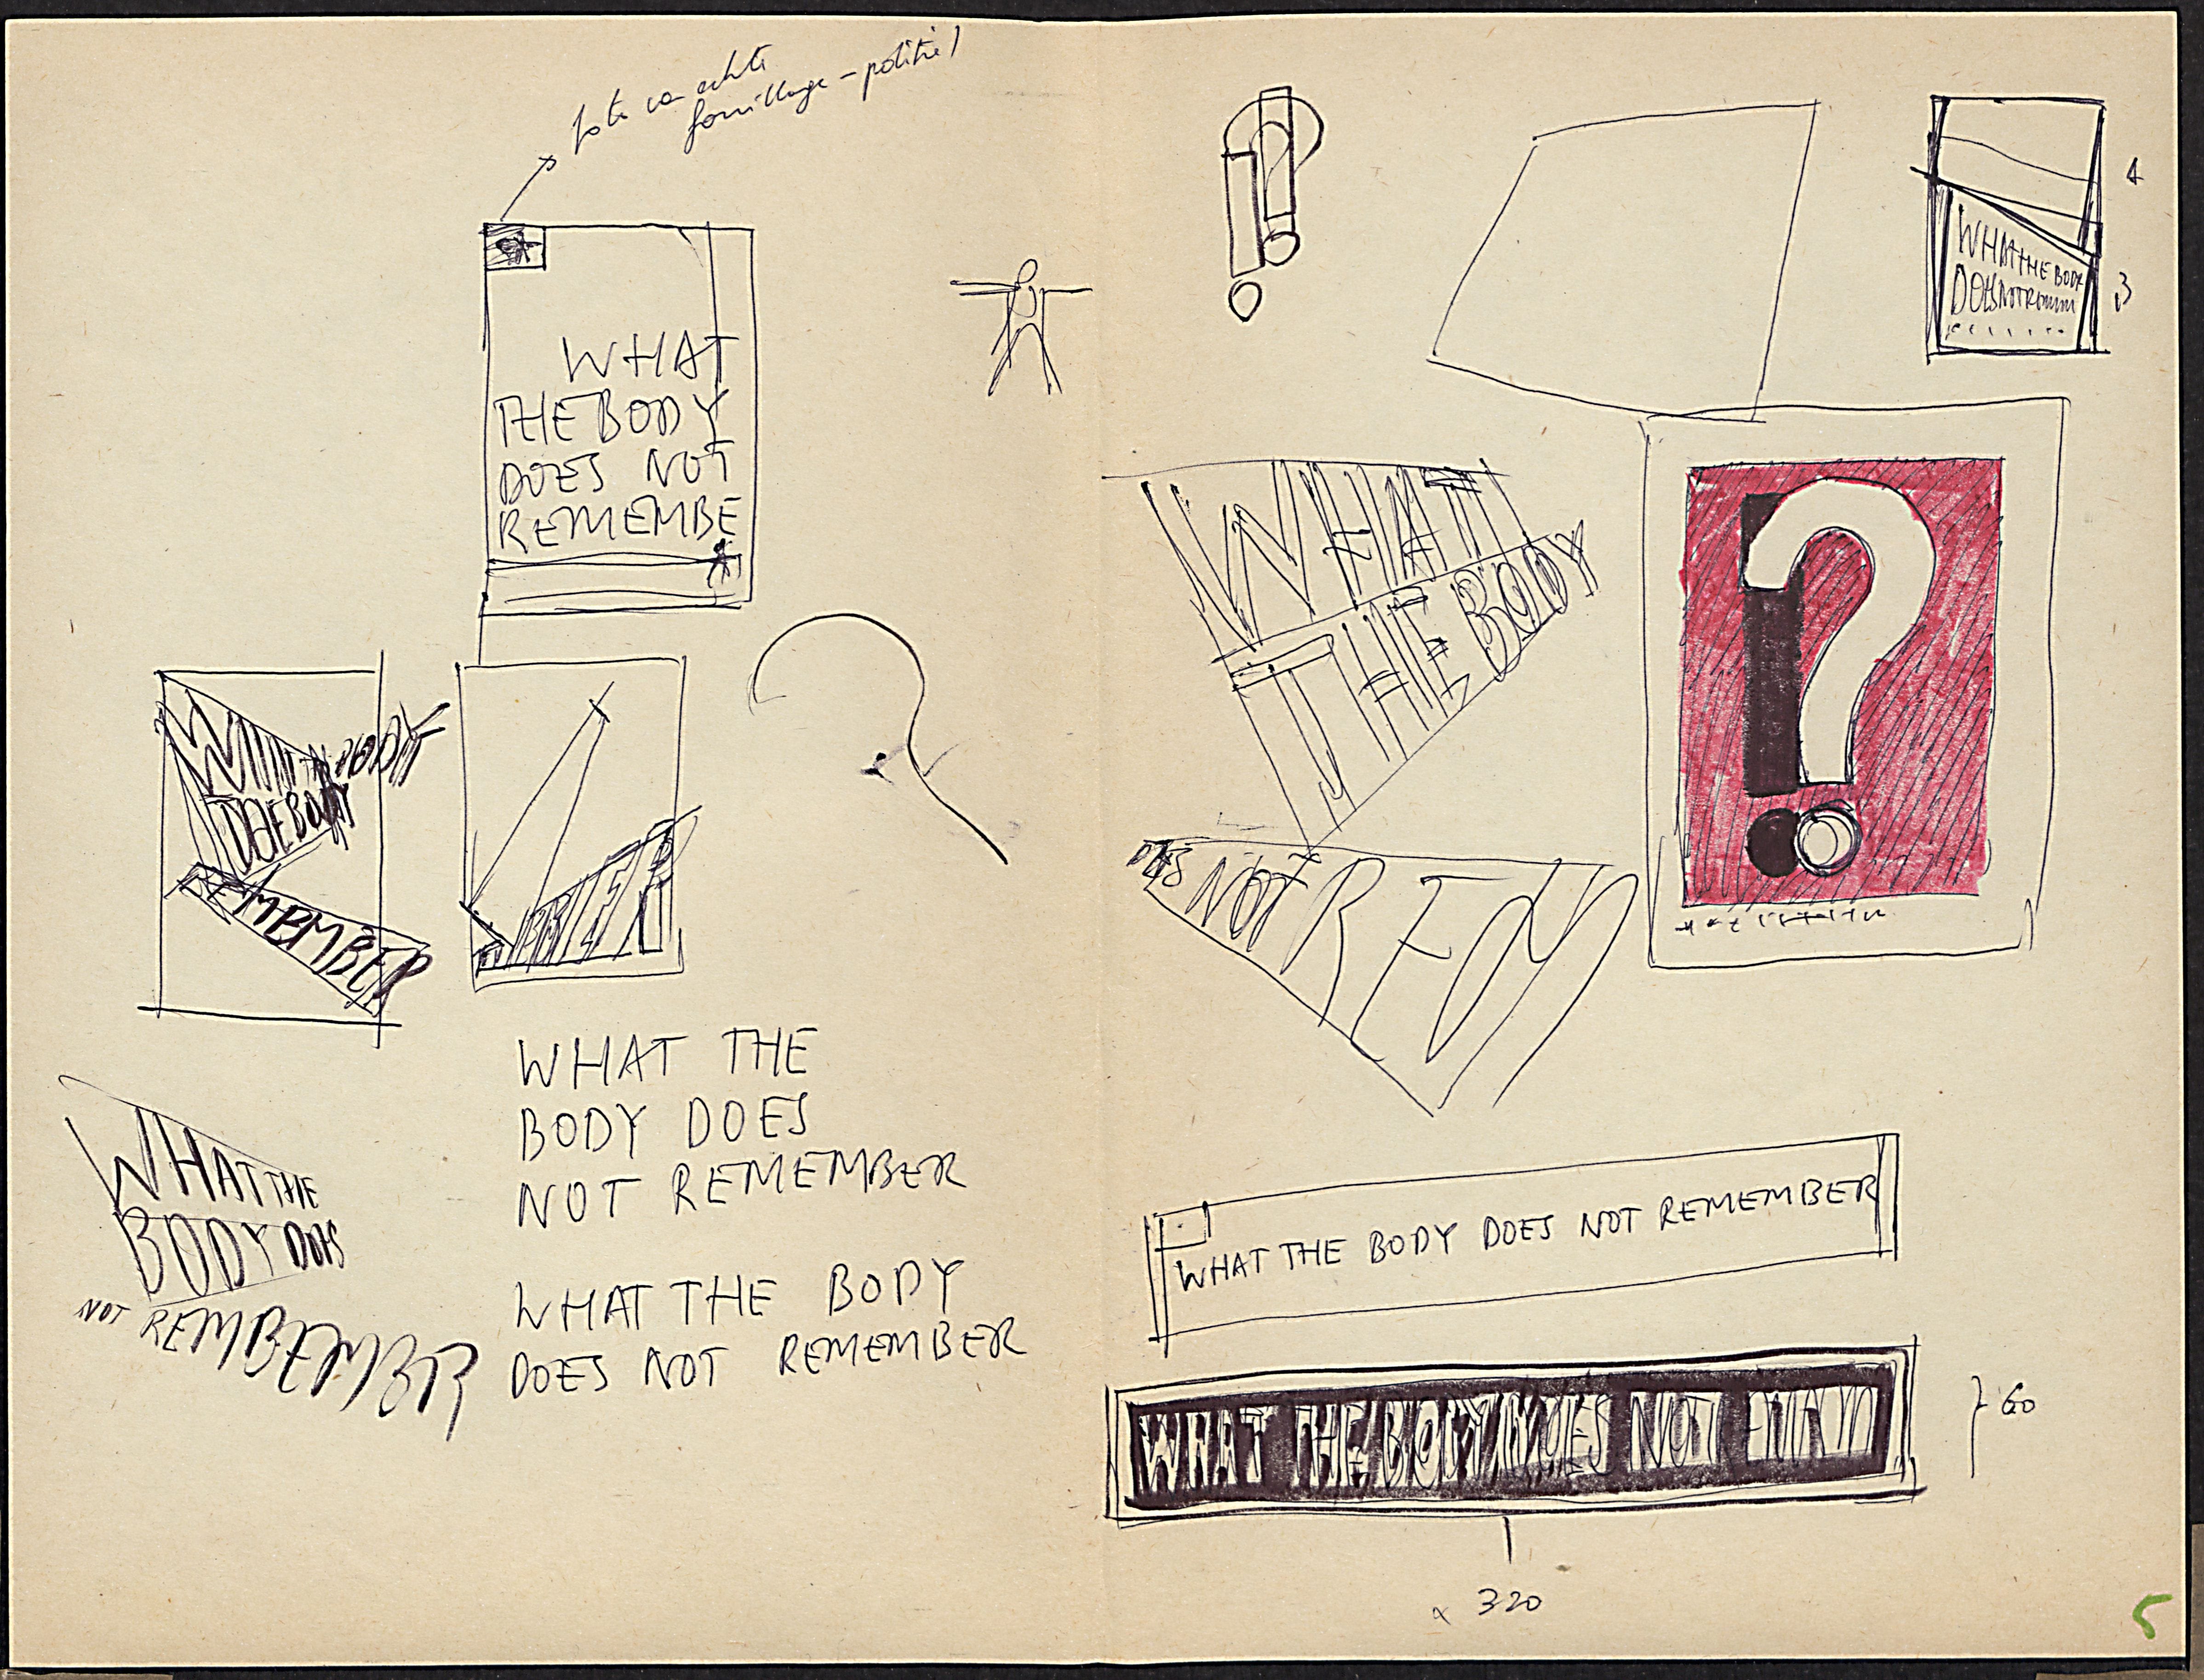 foto va echte
fouillage – politie!
WHAT
THE BODY
DOES NOT
REMEMBE
WHAT THE BODY
DOES NOT
4
3
WHAT
THE BODY
THE BODY
REMEMBER
WHAT
THE BODY
DOES NOT REM
WHAT THE
BODY DOES
NOT REMEMBER
WHAT THE
BODY DOES
NOT REMBEMBR
WHAT THE BODY
DOES NOT REMEMBER
?
WHAT THE BODY DOES NOT REMEMBER
WHAT THE BODY DOES NOT
60
x 320
5